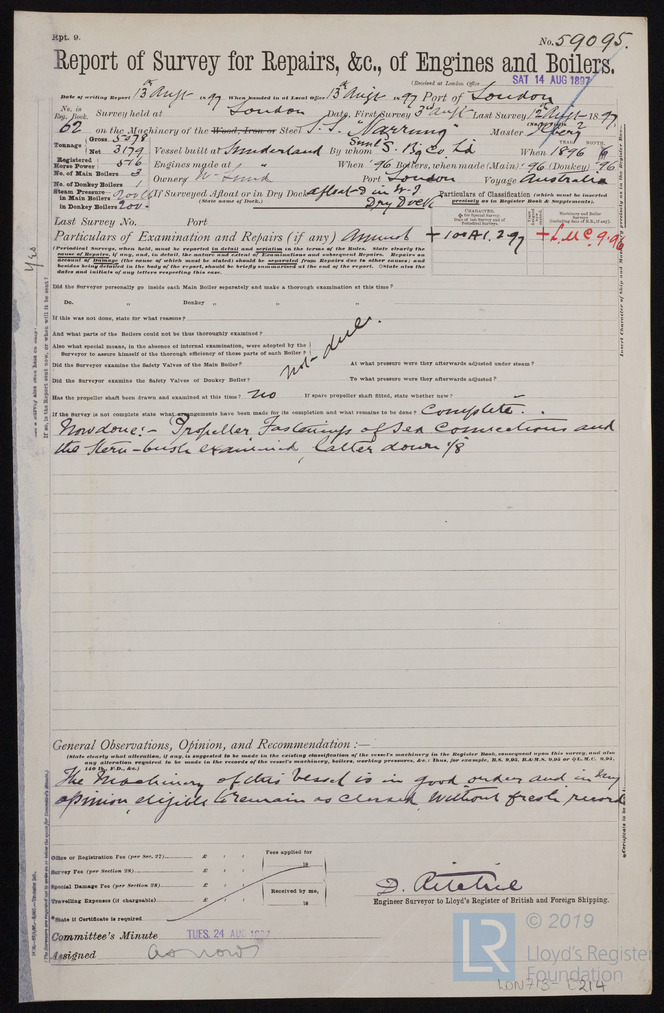 Rpt. 9.
No. 59095.
Report of Survey for Repairs, &c., of Engines and Boilers.
(Received at London Office
SAT 14 AUG 1897
Date of writing Report 13th Augt 1897 When handed in at Local Office 13th Augt 1897 Port of London
No. in Reg. Book. Survey held at London Date, First Survey 3rd Augt Last Survey 12th Augt 1897
62 on the Machinery of the Wood, Iron or Steel S.S. "Narrung" Master
Tonnage Gross 5078 Net 3179 Vessel built at Sunderland By whom Sund S. Bg Co Ld When 1896
Registered Horse Power 576 Engines made at " When '96 Boilers, when made (Main) 96 (Donkey) 96
No. of Main Boilers 3
No. of Donkey Boilers 1 Owners W. Lund Port London Voyage Australia
Steam Pressure in Main Boilers 200 lb in Donkey Boilers 200 If Surveyed Afloat or in Dry Dock afloat & in W.I. Dry Dock
(State name of Dock.)
Particulars of Classification (which must be inserted precisely as in Register Book & Supplements).
Last Survey No. Port
Particulars of Examination and Repairs (if any) Annual
+ 100A1. 2.97
+ L.M.C. 9.96
(Periodical Surveys, when held, must be reported in detail and seriatim in the terms of the Rules. State clearly the
cause of Repairs, if any, and, in detail, the nature and extent of Examinations and subsequent Repairs. Repairs on
account of Damage (the cause of which must be stated) should be separated from Repairs due to other causes; and
besides being detailed in the body of the report, should be briefly summarised at the end of the report. State also the
dates and initials of any letters respecting this case.
Did the Surveyor personally go inside each Main Boiler separately and make a thorough examination at this time?
Do. " Donkey " " "
If this was not done, state for what reasons?
And what parts of the Boilers could not be thus thoroughly examined?
Also what special means, in the absence of internal examination, were adopted by the
Surveyor to assure himself of the thorough efficiency of those parts of such Boiler?
not due.
Did the Surveyor examine the Safety Valves of the Main Boiler? At what pressure were they afterwards adjusted under steam?
Did the Surveyor examine the Safety Valves of Donkey Boiler? To what pressure were they afterwards adjusted?
Has the propeller shaft been drawn and examined at this time? No If spare propeller shaft fitted, state whether new?
If the Survey is not complete state what arrangements have been made for its completion and what remains to be done? Complete.
Now done:- Propeller Fastenings of Sea Connections and
the Stern-bush examined, latter down 1/8
General Observations, Opinion, and Recommendation :—
(State clearly what alteration, if any, is suggested to be made in the existing classification of the vessel's machinery in the Register Book, consequent upon this survey, and also
any alteration required to be made in the records of the vessel's machinery, boilers, working pressures, &c.: Thus, for example, B.S. 9,95, B.&M.S. 9,95 or L.M.C. 9,95,
140 lb., F.D., &c.)
The Machinery of this Vessel is in good order and in my
opinion, eligible to remain as classed, without fresh record
Office or Registration Fee (per Sec. 27) £ : :
Survey Fee (per Section 28) £ : :
Special Damage Fee (per Section 28) £ : :
Travelling Expenses (if chargeable) £ : :
Fees applied for
18
Received by me,
18
*State if Certificate is required
D. Ritchie
Engineer Surveyor to Lloyd's Register of British and Foreign Shipping.
Committee's Minute TUES. 24 AUG 1897
Assigned as now
LR
© 2019
Lloyd's Register
Foundation
LON713-L214